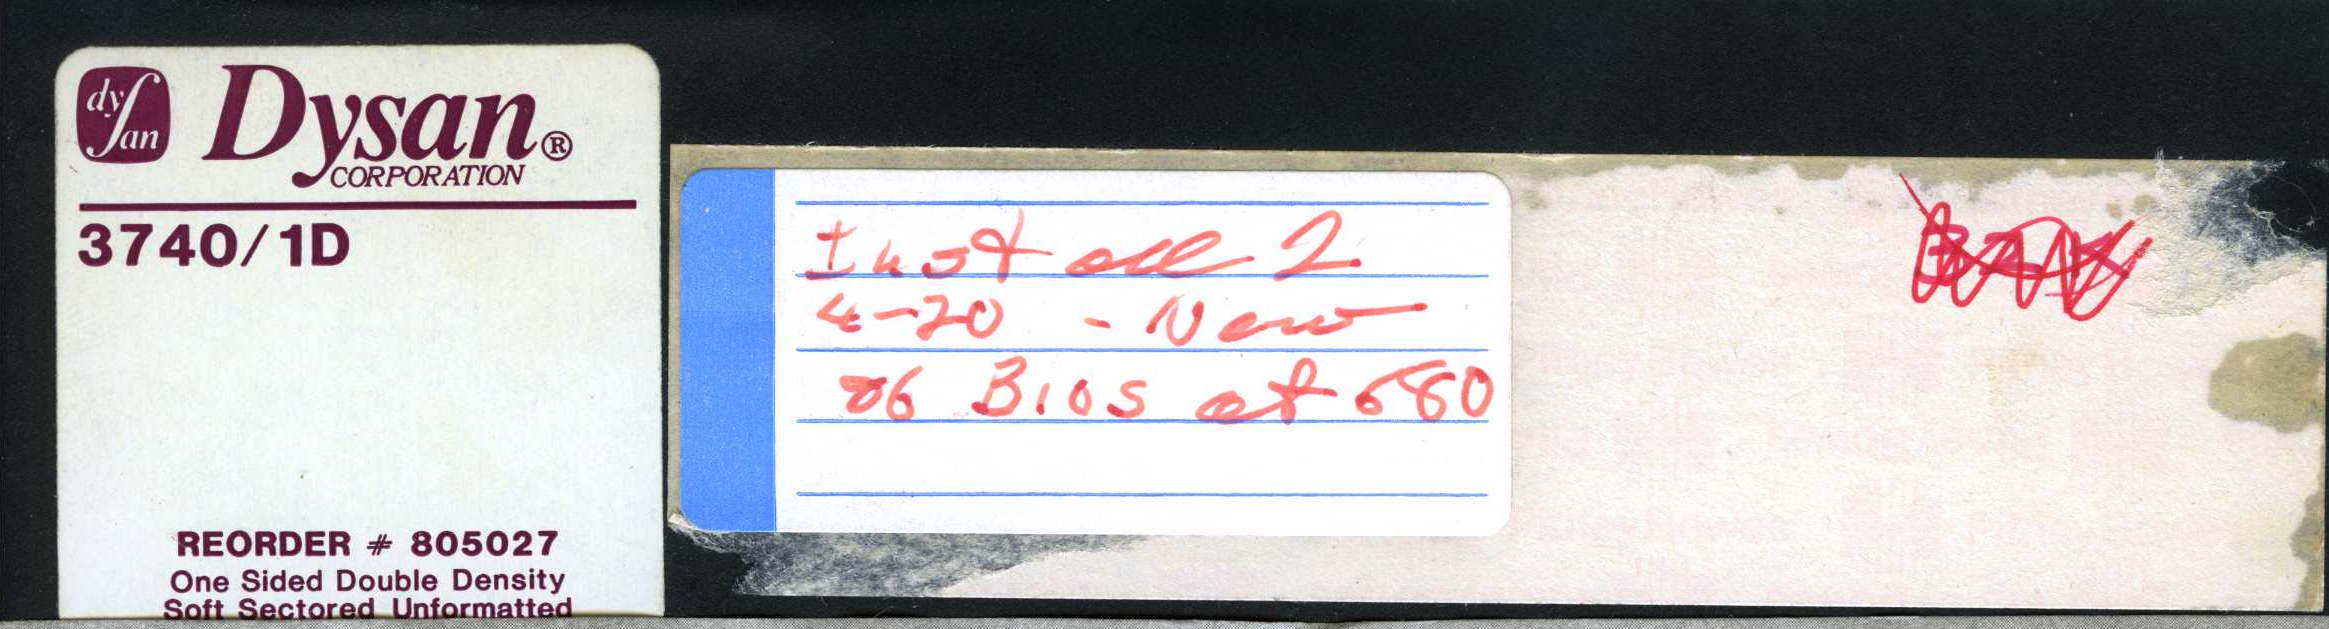 dysan
Dysan®
CORPORATION
3740/1D
REORDER # 805027
One Sided Double Density
Soft Sectored Unformatted
Install 2
4-20 - New
86 Bios at 680